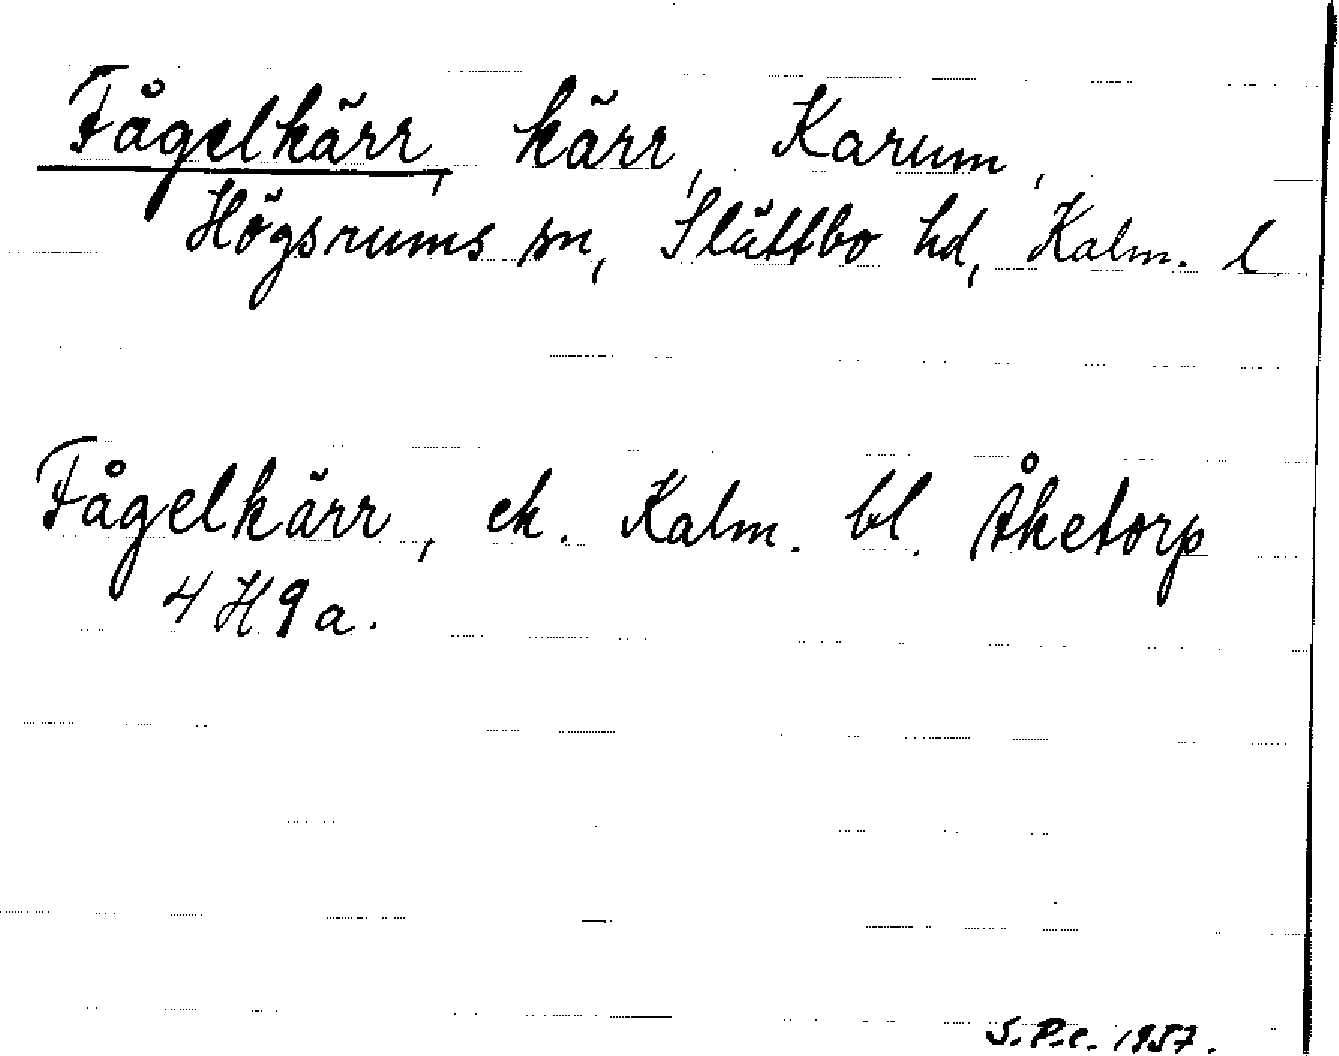 Fågelkärr, kärr, Karum,
Högsrums sn, Slättbo hd, Kalm. l
Fågelkärr, ek. Kalm. bl. Åketorp
4 H 9 a.
S.P.C. 1957.